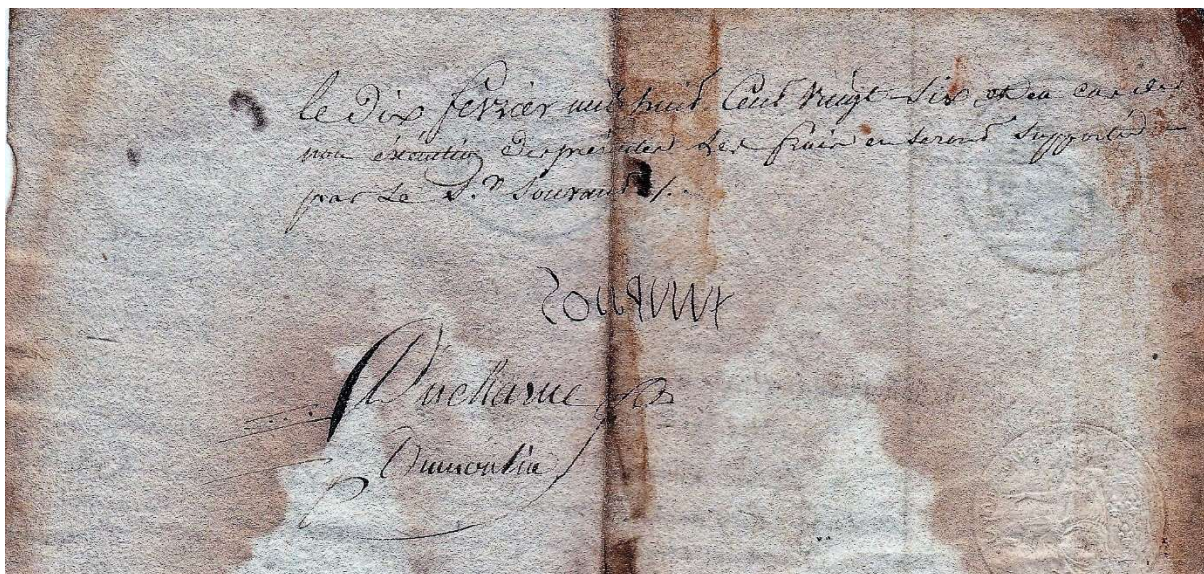 le dix fevrier mil huit Cent vingt-Six, et en cas de
non exécution des présentes Les frais en seront Supportés
par Le S.r Souraud
Ducharne
Dumoutin